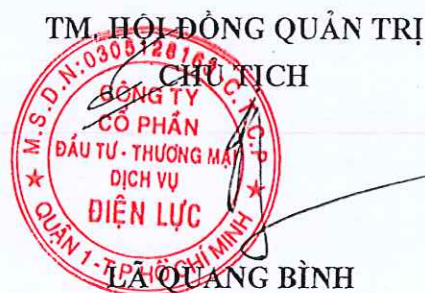 TM. HỘI ĐỒNG QUẢN TRỊ
CHỦ TỊCH
M.S.D.N:0305128163 C.T.C.P
CÔNG TY
CỔ PHẦN
ĐẦU TƯ - THƯƠNG MẠI
DỊCH VỤ
ĐIỆN LỰC
QUẬN 1 - T.P HỒ CHÍ MINH
LÃ QUANG BÌNH